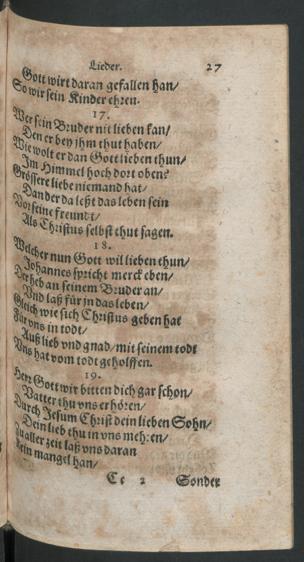 Lieder. 27
Gott wirt daran gefallen han/
So wir sein Kinder ehren.
17.
Wer sein Bruder nit lieben kan/
Den er bey jhm thut haben/
Wie wolt er dan Gott lieben thun/
Im Himmel hoch dort oben?
Grössere liebe niemand hat/
Dan der da leßt das leben sein
Vor seine freundt/
Als Christus selbst thut sagen.
18.
Welcher nun Gott wil lieben thun/
Johannes spricht merck eben/
Der heb an seinem Bruder an/
Vnd laß für jn das leben/
Gleich wie sich Christus geben hat
Für vns in todt/
Auß lieb vnd gnad/ mit seinem todt
Vns hat vom todt geholffen.
19.
Herr Gott wir bitten dich gar schon/
Vatter thu vns erhören/
Durch Jesum Christ dein lieben Sohn/
Dein lieb thu in vns mehren/
Zu aller zeit laß vns daran
Kein mangel han/
Cc 2 Sonder